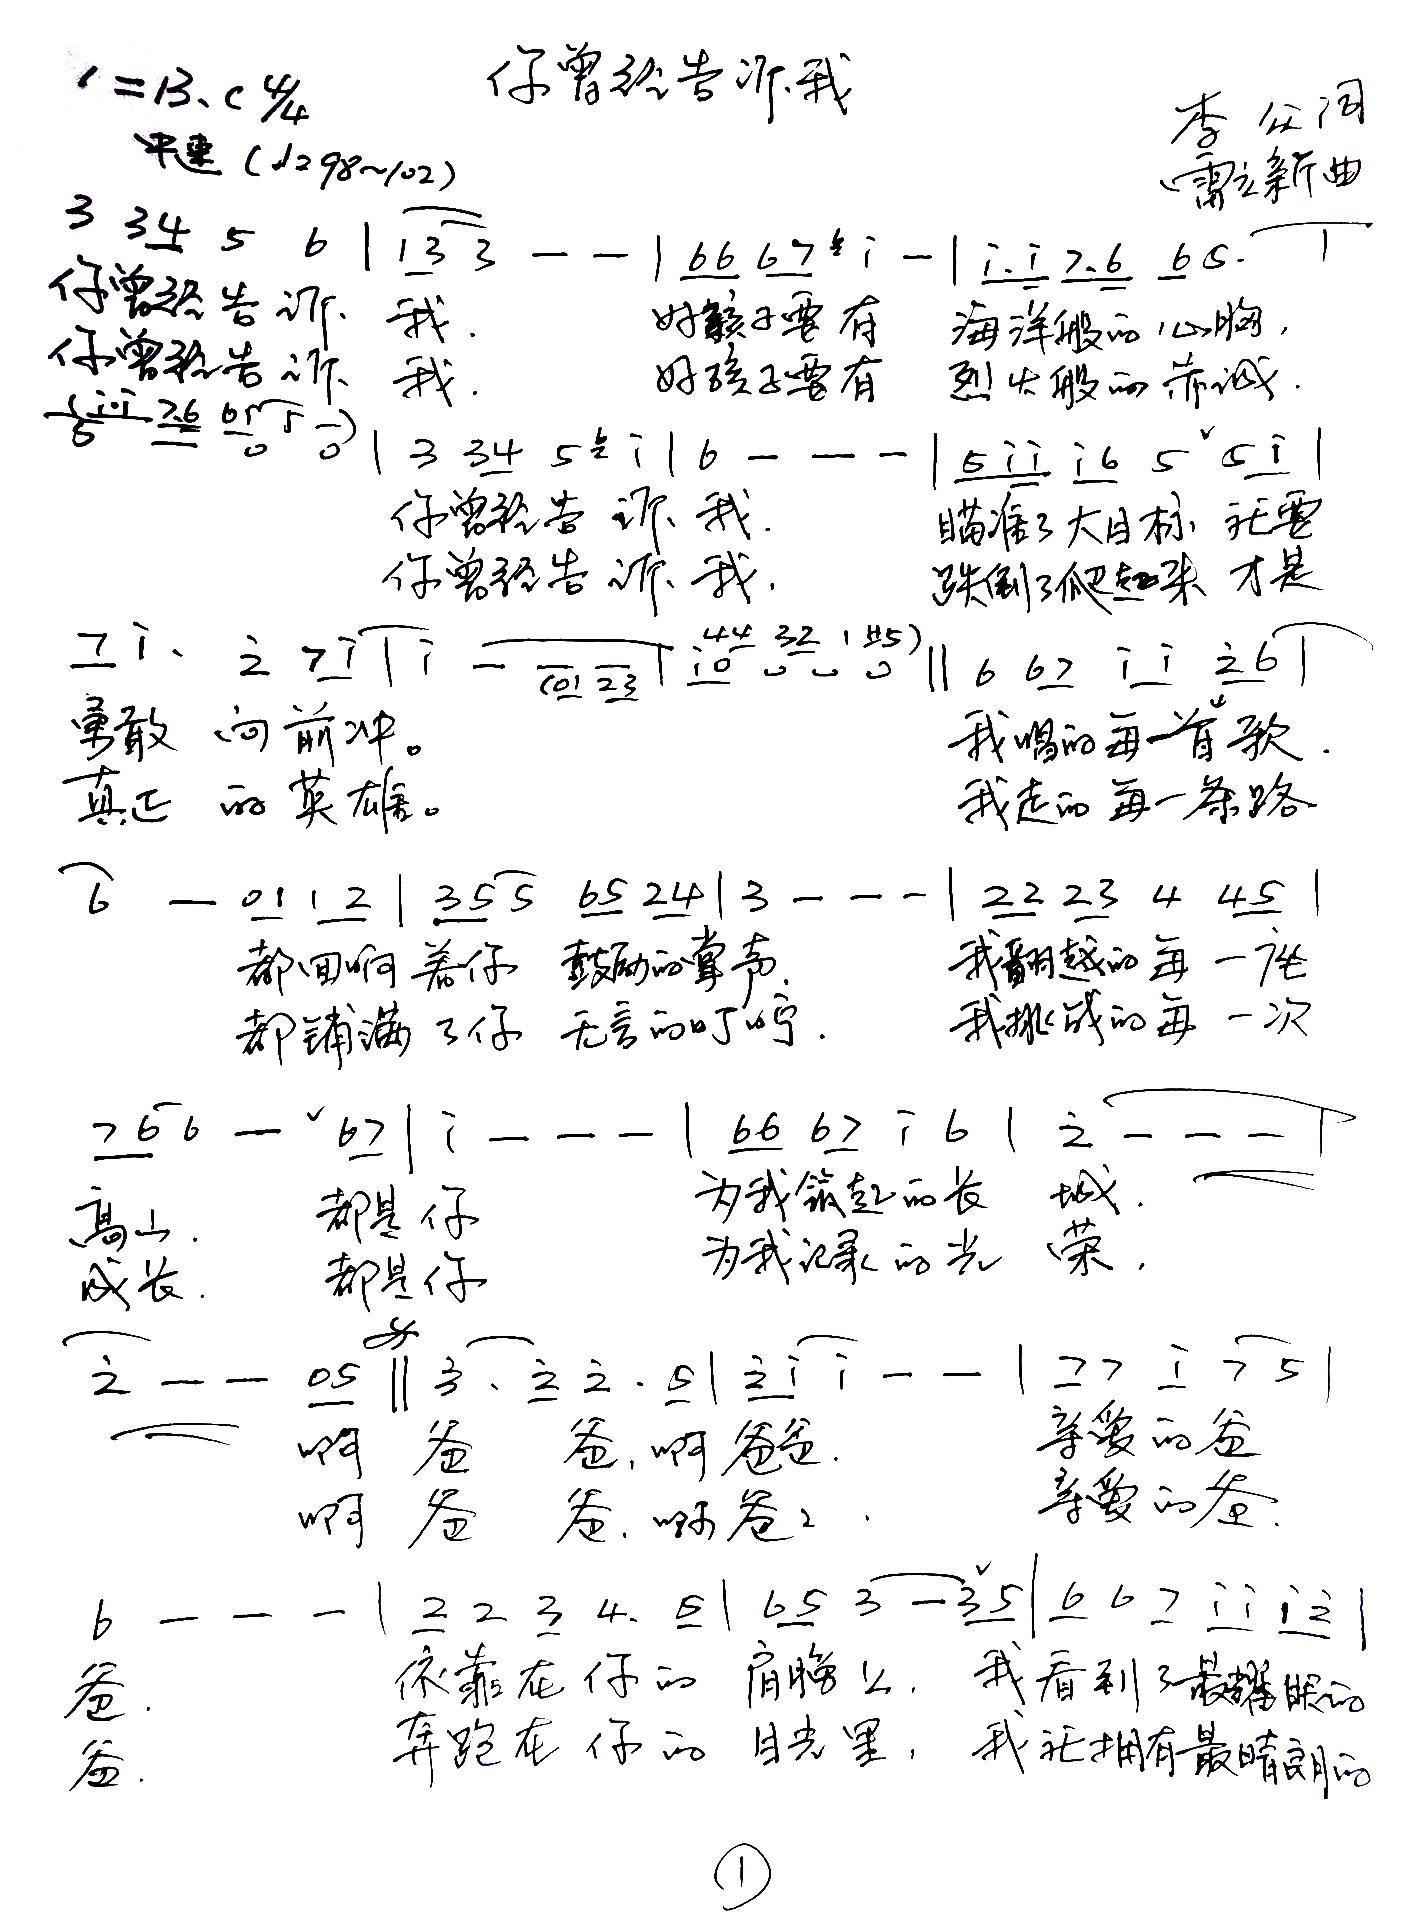 你曾经告诉我
1=B、C 4/4
中速(♩=98~102)
李众词
雷立新曲
3 34 5 6 | 133 - - | 66 67 i - | i.i 7.6 65.
你曾经告诉我. 好孩子要有 海洋般的心胸,
你曾经告诉我. 好孩子要有 烈火般的赤诚.
| 3 34 5 i | 6 - - - | 5ii i6 5 ˅ 5i |
你曾经告诉我. 瞄准了大目标 就要
你曾经告诉我. 跌倒了爬起来 才是
7i. 2 7i | i - (01 23 | i0 44 32 1 #5) || 6 67 i i 26 |
勇敢 向前冲。 我唱的每一首歌.
真正 的英雄。 我走的每一条路
6 - 01 12 | 355 65 24 | 3 - - - | 22 23 4 45 |
都回响着你 鼓励的掌声. 我翻越的每一座
都铺满了你 无言的叮咛. 我挑战的每一次
766 - ˅ 67 | i - - - | 66 67 i 6 | 2 - - - |
高山. 都是你 为我筑起的长城.
成长. 都是你 为我记录的光荣.
2 - - 05 || 3 . 2 2 . 5 | 2i i - - | 77 i 7 5 |
啊 爸 爸,啊爸爸. 亲爱的爸
啊 爸 爸.啊爸 亲爱的爸.
6 - - - | 2 2 3 4. 5 | 65 3 - ˅ 35 | 6 6 7 ii i2 |
爸. 依靠在你的 肩膀上, 我看到了最耀眼的
爸. 奔跑在你的 目光里, 我就拥有最晴朗的
①